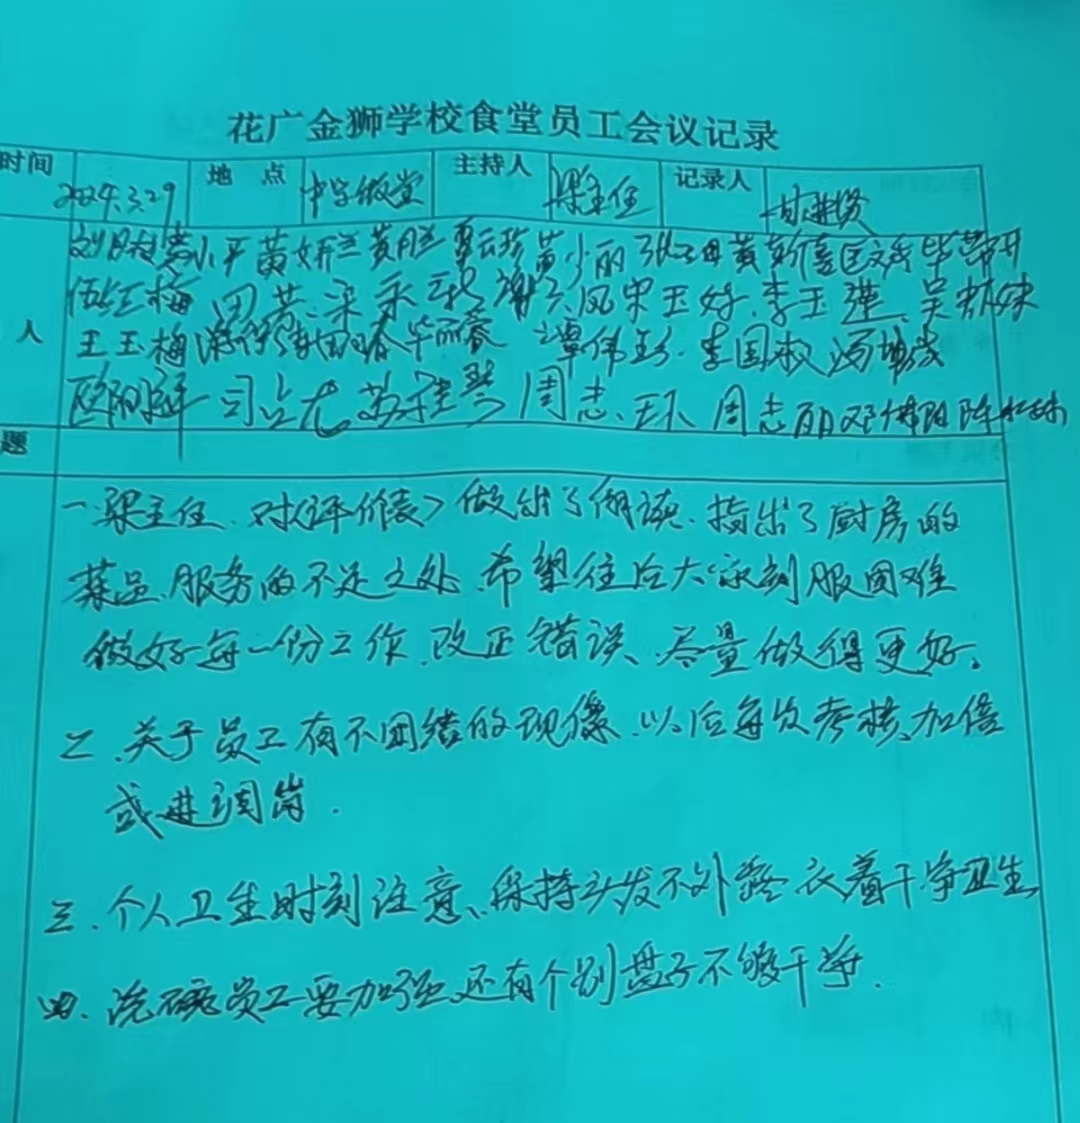 花广金狮学校食堂员工会议记录
时间 2024.3.29 地 点 中学饭堂 主持人 梁主任 记录人 甘进贤
小平 黄妍兰 黄 少丽 黄新喜
人 伍红梅 田芳 谢 凤 宋玉好 李玉莲 吴
王玉梅 谭伟 李国权
欧阳 司 龙 苏 琴 周志环 周志丽 邓 阳 陈
题
一.梁主任.对《评价表》做出了解读.指出了厨房的
菜品.服务的不足之处.希望往后大家刻服困难
做好每一份工作.改正错误、尽量做得更好。
二.关于员工有不团结的现像.以后每次考核、加倍
或进调岗.
三.个人卫生时刻注意、保持头发不外露 衣着干净卫生
四、洗碗员工要加强 还有个别盘子不够干净.